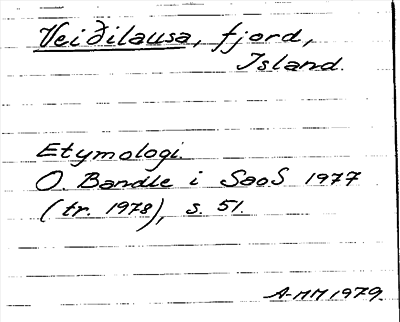 Veiðilausa, fjord,
Island.
Etymologi.
O. Bandle i SaoS 1977
(tr. 1978), s. 51.
A-MM 1979.